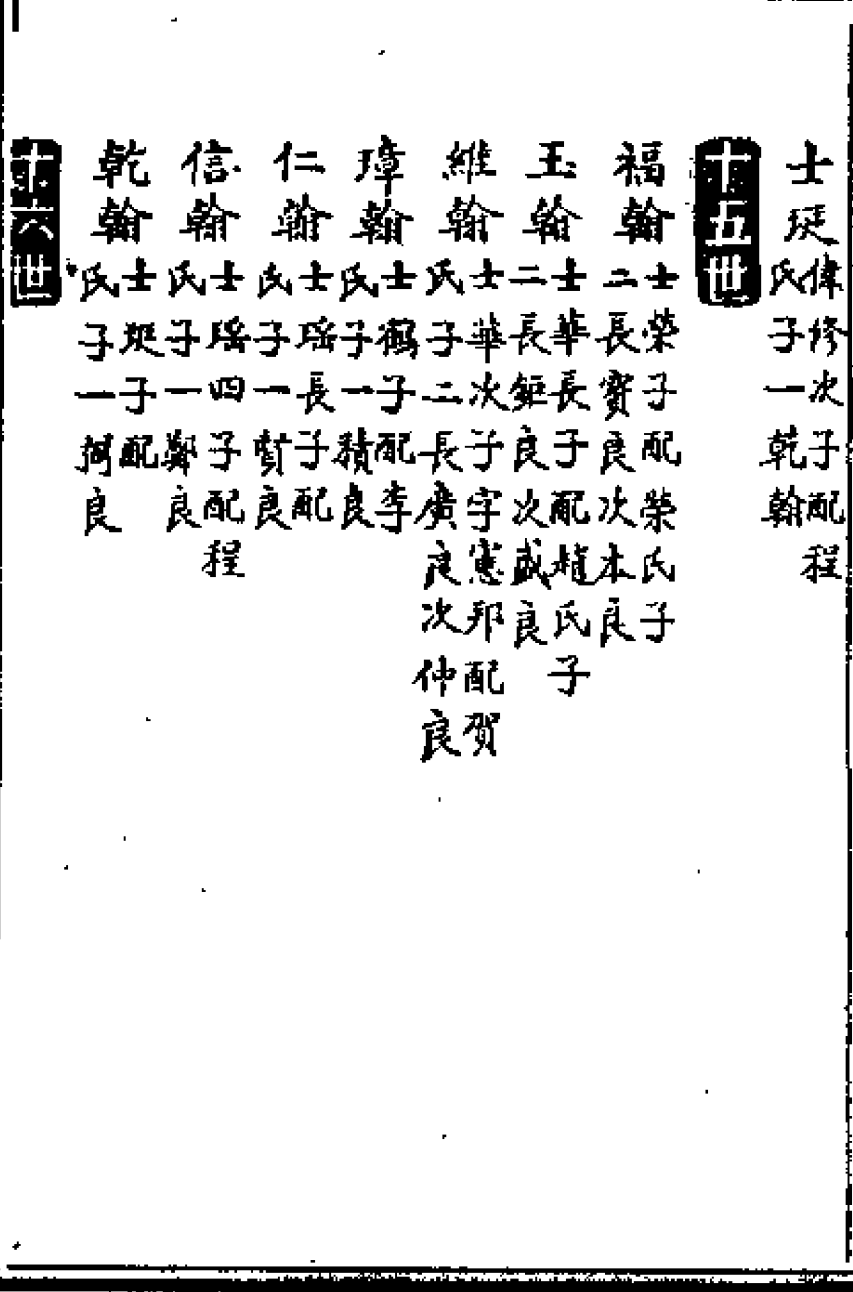 士珽偉修次子配程氏子一乾翰
十五世
福翰士榮子配榮氏子二長寶良次本良
玉翰士華長子配趙氏子二長鉅良次盛良
維翰士華次子字憲邦配賀氏子二長廣良次仲良
璋翰士鶴子配李氏子一積良
仁翰士瑤長子配氏子一良
信翰士瑤四子配程氏子一鄭良
乾翰士珽子配氏子一弼良
十六世